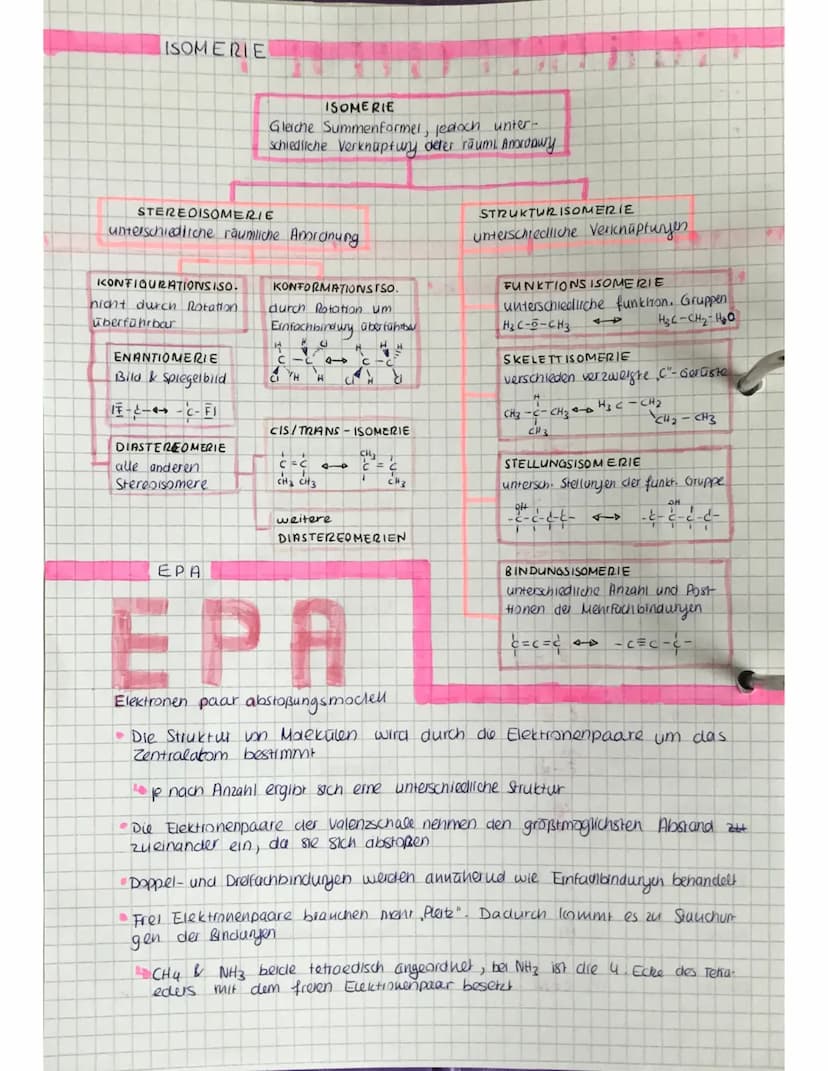 ISOMERIE
ISOMERIE
Gleiche Summenformel, jedoch unter-
schiedliche Verknüpfung oder räuml. Anordnung
STEREOISOMERIE
unterschiedliche räumliche Anordnung
KONFIGURATIONSISO.
nicht durch Rotation
überführbar
ENANTIOMERIE
Bild & Spiegelbild
DIASTEREOMERIE
alle anderen
Stereoisomere
KONFORMATIONSISO.
durch Rotation um
Einfachbindung überführbar
H H Cl H H H
C - C ↔ C - C
Cl H H Cl H Cl
CIS/TRANS - ISOMERIE
CH3
C = C ↔ C = C
CH3 CH3 CH3
weitere
DIASTEREOMERIEN
STRUKTURISOMERIE
unterschiedliche Verknüpfungen
FUNKTIONSISOMERIE
unterschiedliche funktion. Gruppen
H3C-O-CH3 ↔ H3C-CH2-
SKELETTISOMERIE
verschieden verzweigte „C"-Gerüste
H
CH3 -C- CH3 ↔ H3C - CH2
CH3
CH2 - CH3
STELLUNGSISOMERIE
untersch. Stellungen der funkt. Gruppe
OH OH
-C-C-C-C- ↔ -C-C-C-C-
BINDUNGSISOMERIE
unterschiedliche Anzahl und Posi-
tionen der Mehrfachbindungen
C=C=C ↔ -C≡C-C-
EPA
EPA
Elektronen paar abstoßungsmodell
• Die Struktur von Molekülen wird durch die Elektronenpaare um das
Zentralatom bestimmt
↳ je nach Anzahl ergibt sich eine unterschiedliche Struktur
• Die Elektronenpaare der Valenzschale nehmen den größtmöglichsten Abstand zu
zueinander ein, da sie sich abstoßen
• Doppel- und Dreifachbindungen werden annäherud wie Einfachbindungen behandelt
• Frei Elektronenpaare brauchen mehr „Platz". Dadurch kommt es zu Stauchun-
gen der Bindungen
↳ CH4 & NH3 beide tetraedisch angeordnet, bei NH3 ist die 4. Ecke des Tetra-
eders mit dem freien Elektronenpaar besetzt